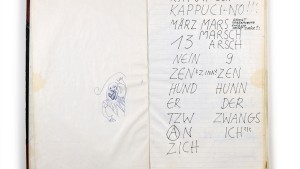 KAPPUCI-NO!!!
MÄRZ MARS
MARSCH
13 ARSCH
NEIN 9
ZEN ZEN
HUND HUNN
ER DER
TZW ZWANGS
AN ICH!!!
ZICH